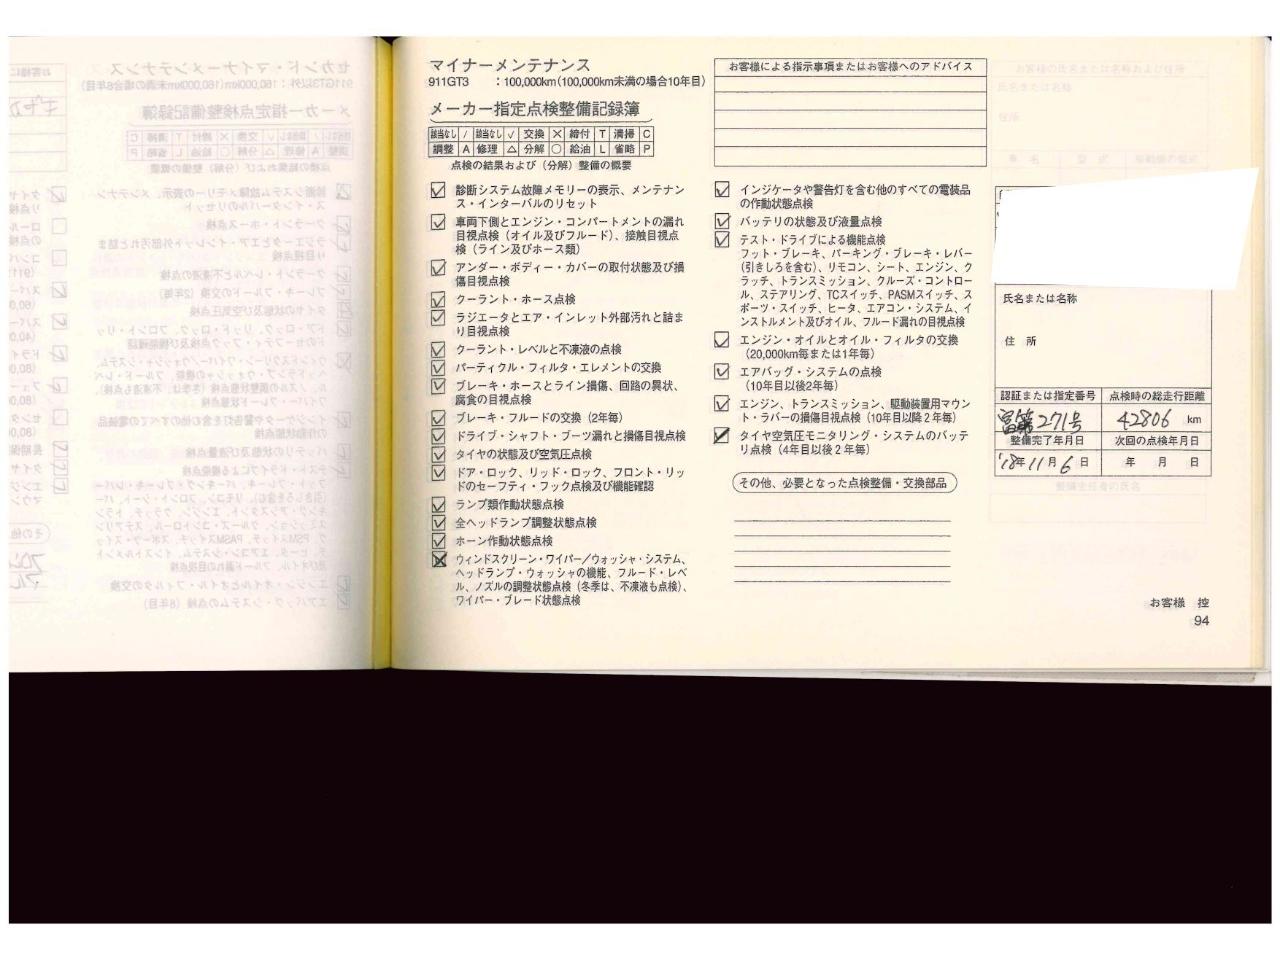 マイナーメンテナンス
911GT3 : 100,000km(100,000km未満の場合10年目)
メーカー指定点検整備記録簿
該当なし / 該当なし ✓ 交換 ✕ 締付 T 清掃 C
調整 A 修理 △ 分解 ○ 給油 L 省略 P
点検の結果および(分解)整備の概要
診断システム故障メモリーの表示、メンテナン
ス・インターバルのリセット
車両下側とエンジン・コンパートメントの漏れ
目視点検(オイル及びフルード)、接触目視点
検(ライン及びホース類)
アンダー・ボディー・カバーの取付状態及び損
傷目視点検
クーラント・ホース点検
ラジエータとエア・インレット外部汚れと詰ま
り目視点検
クーラント・レベルと不凍液の点検
パーティクル・フィルタ・エレメントの交換
ブレーキ・ホースとライン損傷、回路の異状、
腐食の目視点検
ブレーキ・フルードの交換(2年毎)
ドライブ・シャフト・ブーツ漏れと損傷目視点検
タイヤの状態及び空気圧点検
ドア・ロック、リッド・ロック、フロント・リッ
ドのセーフティ・フック点検及び機能確認
ランプ類作動状態点検
全ヘッドランプ調整状態点検
ホーン作動状態点検
ウィンドスクリーン・ワイパー/ウォッシャ・システム、
ヘッドランプ・ウォッシャの機能、フルード・レベ
ル、ノズルの調整状態点検(冬季は、不凍液も点検)、
ワイパー・ブレード状態点検
お客様による指示事項またはお客様へのアドバイス
インジケータや警告灯を含む他のすべての電装品
の作動状態点検
バッテリの状態及び液量点検
テスト・ドライブによる機能点検
フット・ブレーキ、パーキング・ブレーキ・レバー
(引きしろを含む)、リモコン、シート、エンジン、ク
ラッチ、トランスミッション、クルーズ・コントロー
ル、ステアリング、TCスイッチ、PASMスイッチ、ス
ポーツ・スイッチ、ヒータ、エアコン・システム、イ
ンストルメント及びオイル、フルード漏れの目視点検
エンジン・オイルとオイル・フィルタの交換
(20,000km毎または1年毎)
エアバッグ・システムの点検
(10年目以後2年毎)
エンジン、トランスミッション、駆動装置用マウン
ト・ラバーの損傷目視点検(10年目以降2年毎)
タイヤ空気圧モニタリング・システムのバッテ
リ点検(4年目以後2年毎)
その他、必要となった点検整備・交換部品
氏名または名称
住 所
認証または指定番号 点検時の総走行距離
271号 42806 km
整備完了年月日 次回の点検年月日
'18年11月6日 年 月 日
お客様 控
94